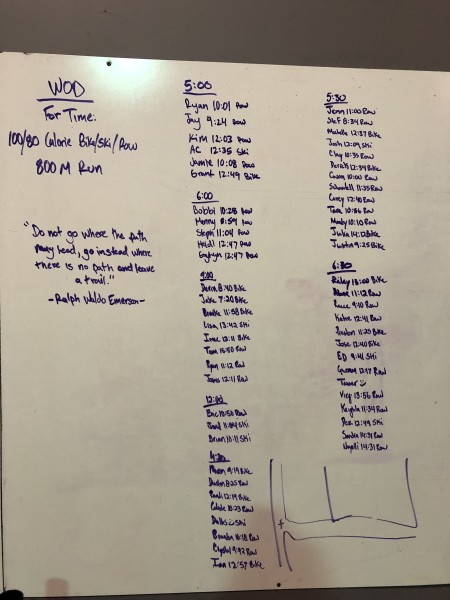 WOD
For Time:
100/80 Calorie Bike/Ski/Row
800 M Run
"Do not go where the path
may lead, go instead where
there is no path and leave
a trail."
-Ralph Waldo Emerson-
5:00
Ryan 10:01 Row
Jay 9:24 Row
Kim 12:03 Row
AC 12:35 Ski
Jamie 10:08 Row
Grant 12:49 Bike
6:00
Bobbi 10:28 Row
Manny 8:59 Row
Steph 11:04 Row
Heidi 12:47 Row
12:47 Row
9:00
Devin 8:40 Bike
Jake 7:20 Bike
Brooke 11:58 Bike
Lisa 13:42 Ski
12:11 Bike
Tom Row
Ryan 11:12 Row
12:11 Row
12:00
Eric 10:50 Row
Ski
Brian 10:11 Ski
4:30
9:19 Bike
Dustin 8:25 Row
12:19 Bike
10:23 Row
Dallas Ski
Brandon Row
Crystal 9:42 Row
Ian 12:57 Bike
5:30
Jenn 11:00 Row
Stef 8:34 Row
Michelle 12:37 Bike
Josh 12:09 Ski
Clay 10:35 Row
12:34 Bike
Casey 10:00 Row
11:35 Row
Corey 12:40 Row
Tara 10:56 Row
Mandy 10:10 Row
Julia 14:12 Bike
Justin 9:25 Bike
6:30
Riley 13:00 Bike
11:12 Row
9:10 Row
Katie 12:41 Row
11:25 Bike
Jose 12:40 Bike
ED 9:41 Ski
12:17 Row
Tanner
13:56 Row
Kayla 11:34 Row
12:49 Ski
Sandra 14:31 Row
14:31 Row